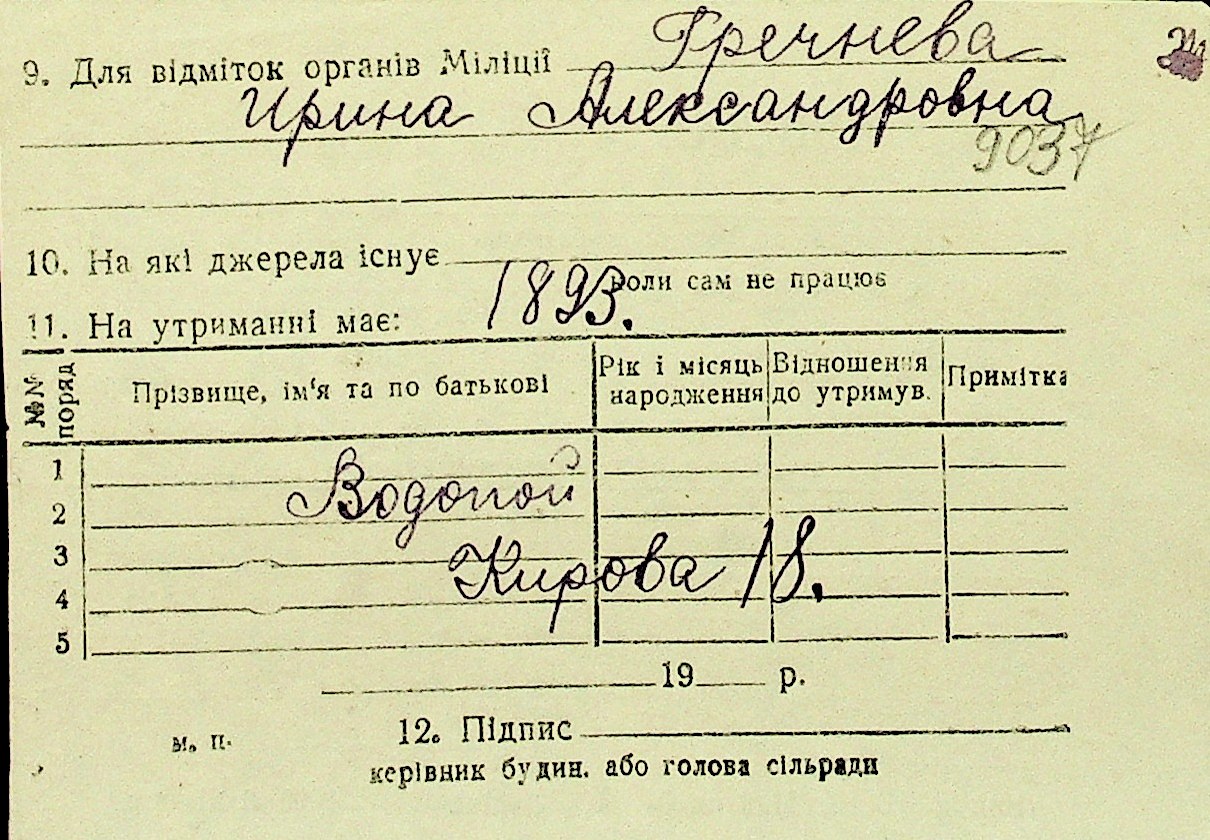 9. Для відміток органів Міліції Гречнева
Ирина Александровна
9037
10. На які джерела існує
коли сам не працює
11. На утриманні має: 1893.
№№ поряд
Прізвище, ім'я та по батькові
Рік і місяць народження
Відношення до утримув.
Примітка
1
2 Водопой
3
4 Кирова 18.
5
19 р.
м. п. 12. Підпис
керівник будин. або голова сільради